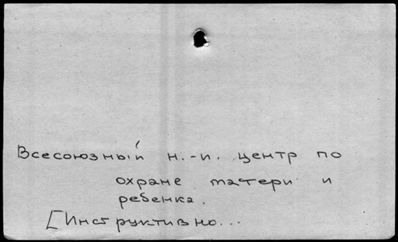 Всесоюзный н.-и. центр по
охране матери и
ребенка.
[Инструктивно...